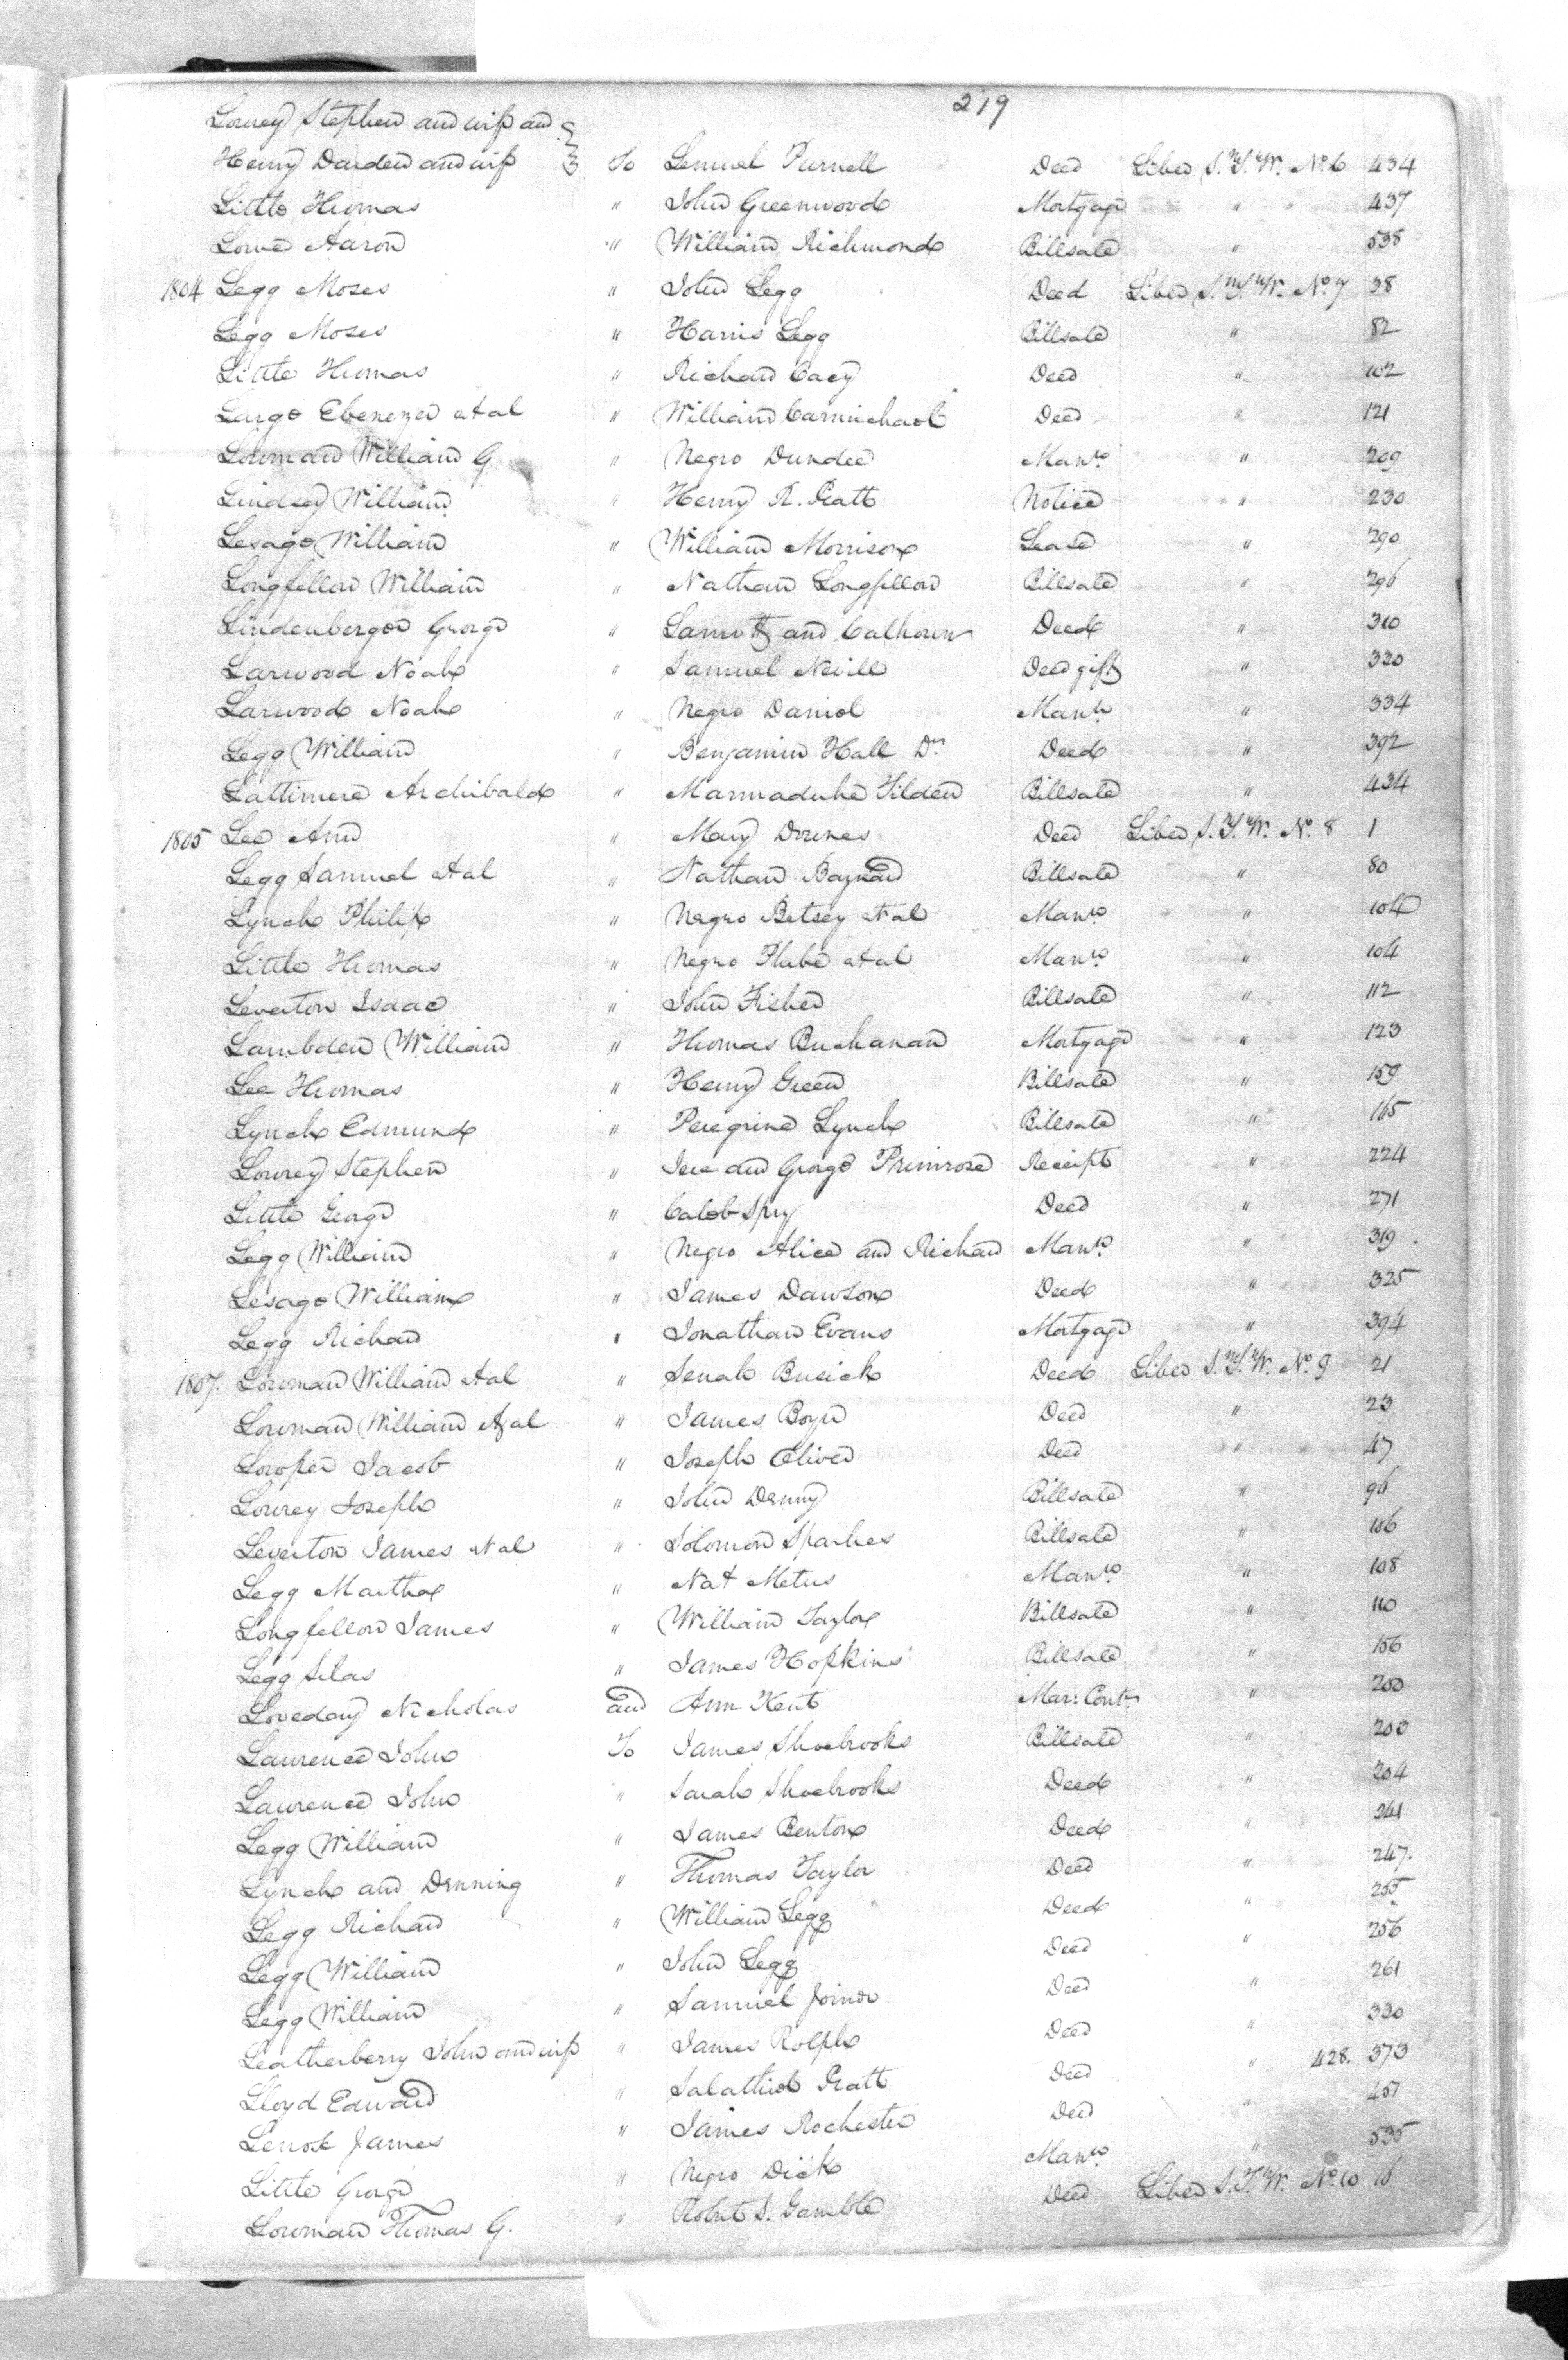 219
Lowrey Stephen and wife and
Henry Darden and wife To Lemuel Purnell Deed Liber S.T.W. No. 6 434
Little Thomas " John Greenwood Mortgage " 437
Lowe Aaron " William Richmond Billsale " 538
1804 Legg Moses " John Legg Deed Liber S.T.W. No. 7 38
Legg Moses " Harris Legg Billsale " 82
Little Thomas " Richard Cacy Deed " 102
Largo Ebenezer et al " William Carmichael Deed " 121
Lowman William G " Negro Dundee Manro. " 209
Lindsey William " Henry R. Pratt Notice " 230
Lesage William " William Morrison Lease " 290
Longfellow William " Nathan Longfellow Billsale " 296
Lindenberger George " and Calhoun Deed " 310
Larwood Noah " Samuel Nevill Deed gift " 320
Larwood Noah " Negro Daniel Manro. " 334
Legg William " Benjamin Hall Dr. Deed " 392
Lattimere Archibald " Marmaduke Tilden Billsale " 434
1805 Lee Ann " Mary Downes Deed Liber S.T.W. No. 8 1
Legg Samuel et al " Nathan Baynard Billsale " 80
Lynch Philip " Negro Betsey et al Manro. " 104
Little Thomas " Negro Phebe et al Manro. " 104
Leverton Isaac " John Fisher Billsale " 112
Lambden William " Thomas Buchanan Mortgage " 123
Lee Thomas " Henry Green Billsale " 159
Lynch Edmund " Peregrine Lynch Billsale " 165
Lowrey Stephen " Jere and George Primrose Receipt " 224
Little George " Caleb Spry Deed " 271
Legg William " Negro Alice and Richard Manro. " 319
Lesage William " James Dawson Deed " 325
Legg Richard " Jonathan Evans Mortgage " 394
1807. Lowman William et al " Senah Busick Deed Liber S.T.W. No. 9 21
Lowman William et al " James Boyd Deed " 23
Looper Jacob " Joseph Oliver Deed " 47
Lowrey Joseph " John Denny Billsale " 96
Leverton James et al " Solomon Sparkes Billsale " 106
Legg Martha " Nat Metus Manro. " 108
Longfellow James " William Taylor Billsale " 110
Legg Silas " James Hopkins Billsale " 156
Loveday Nicholas and Ann Kent Mar: Contr. " 200
Laurence John To James Shoebrooks Billsale " 203
Laurence John " Sarah Shoebrooks Deed " 204
Legg William " James Benton Deed " 241
Lynch and Denning " Thomas Taylor Deed " 247.
Legg Richard " William Legg Deed " 255
Legg William " John Legg Deed 256
Legg William " Samuel Joiner Deed " 261
Leatherberry John and wife " James Rolph Deed " 330
Lloyd Edward " Salathiel Pratt Deed " 428. 373
Lenox James " James Rochester Deed " 457
Little George " Negro Dick Manro. " 535
Lowman Thomas G. " Robert S. Gamble Deed Liber S.T.W. No. 10 16